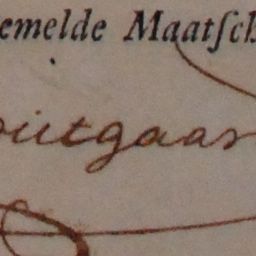 emelde Maatſch
outgaar